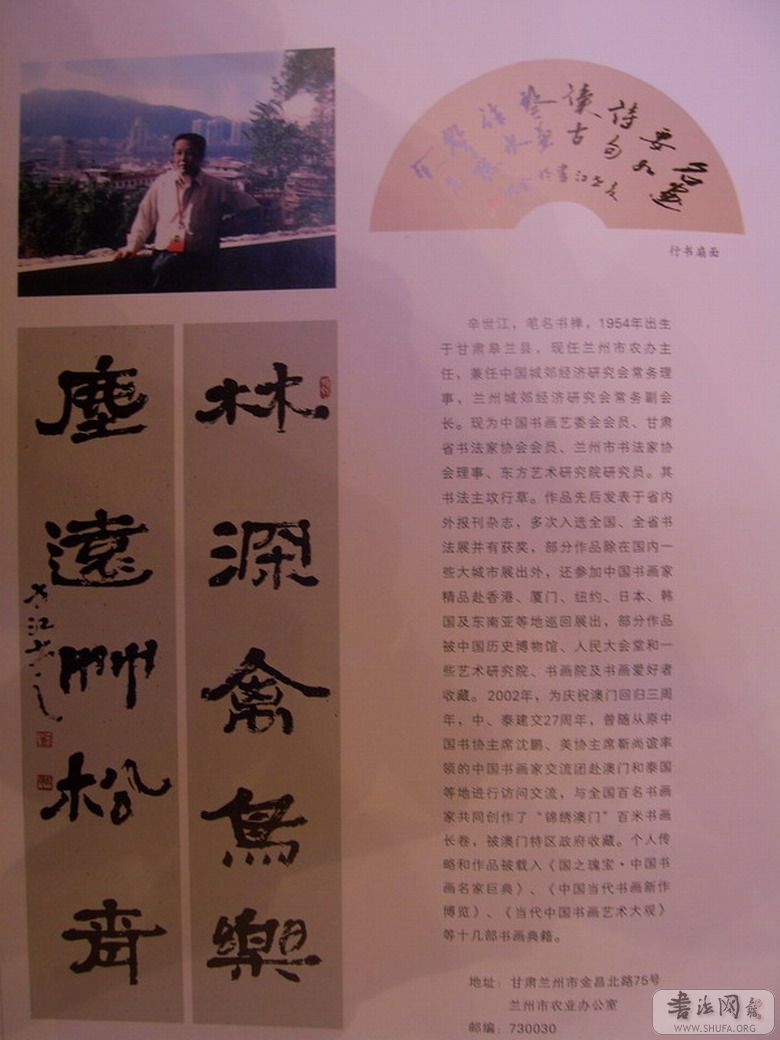 行书扇面
辛世江，笔名书禅，1954年出生
于甘肃皋兰县，现任兰州市农办主
任，兼任中国城郊经济研究会常务理
事，兰州城郊经济研究会常务副会
长。现为中国书画艺委会会员、甘肃
省书法家协会会员、兰州市书法家协
会理事、东方艺术研究院研究员。其
书法主攻行草。作品先后发表于省内
外报刊杂志，多次入选全国、全省书
法展并有获奖，部分作品除在国内一
些大城市展出外，还参加中国书画家
精品赴香港、厦门、纽约、日本、韩
国及东南亚等地巡回展出，部分作品
被中国历史博物馆、人民大会堂和一
些艺术研究院、书画院及书画爱好者
收藏。2002年，为庆祝澳门回归三周
年，中、泰建交27周年，曾随从原中
国书协主席沈鹏、美协主席靳尚谊率
领的中国书画家交流团赴澳门和泰国
等地进行访问交流，与全国百名书画
家共同创作了“锦绣澳门”百米书画
长卷，被澳门特区政府收藏。个人传
略和作品被载入《国之瑰宝·中国书
画名家巨典》、《中国当代书画新作
博览》、《当代中国书画艺术大观》
等十几部书画典籍。
地址：甘肃兰州市金昌北路75号
兰州市农业办公室
邮编：730030
林深禽鸟樂
塵遠竹松青
书法网
WWW.SHUFA.ORG